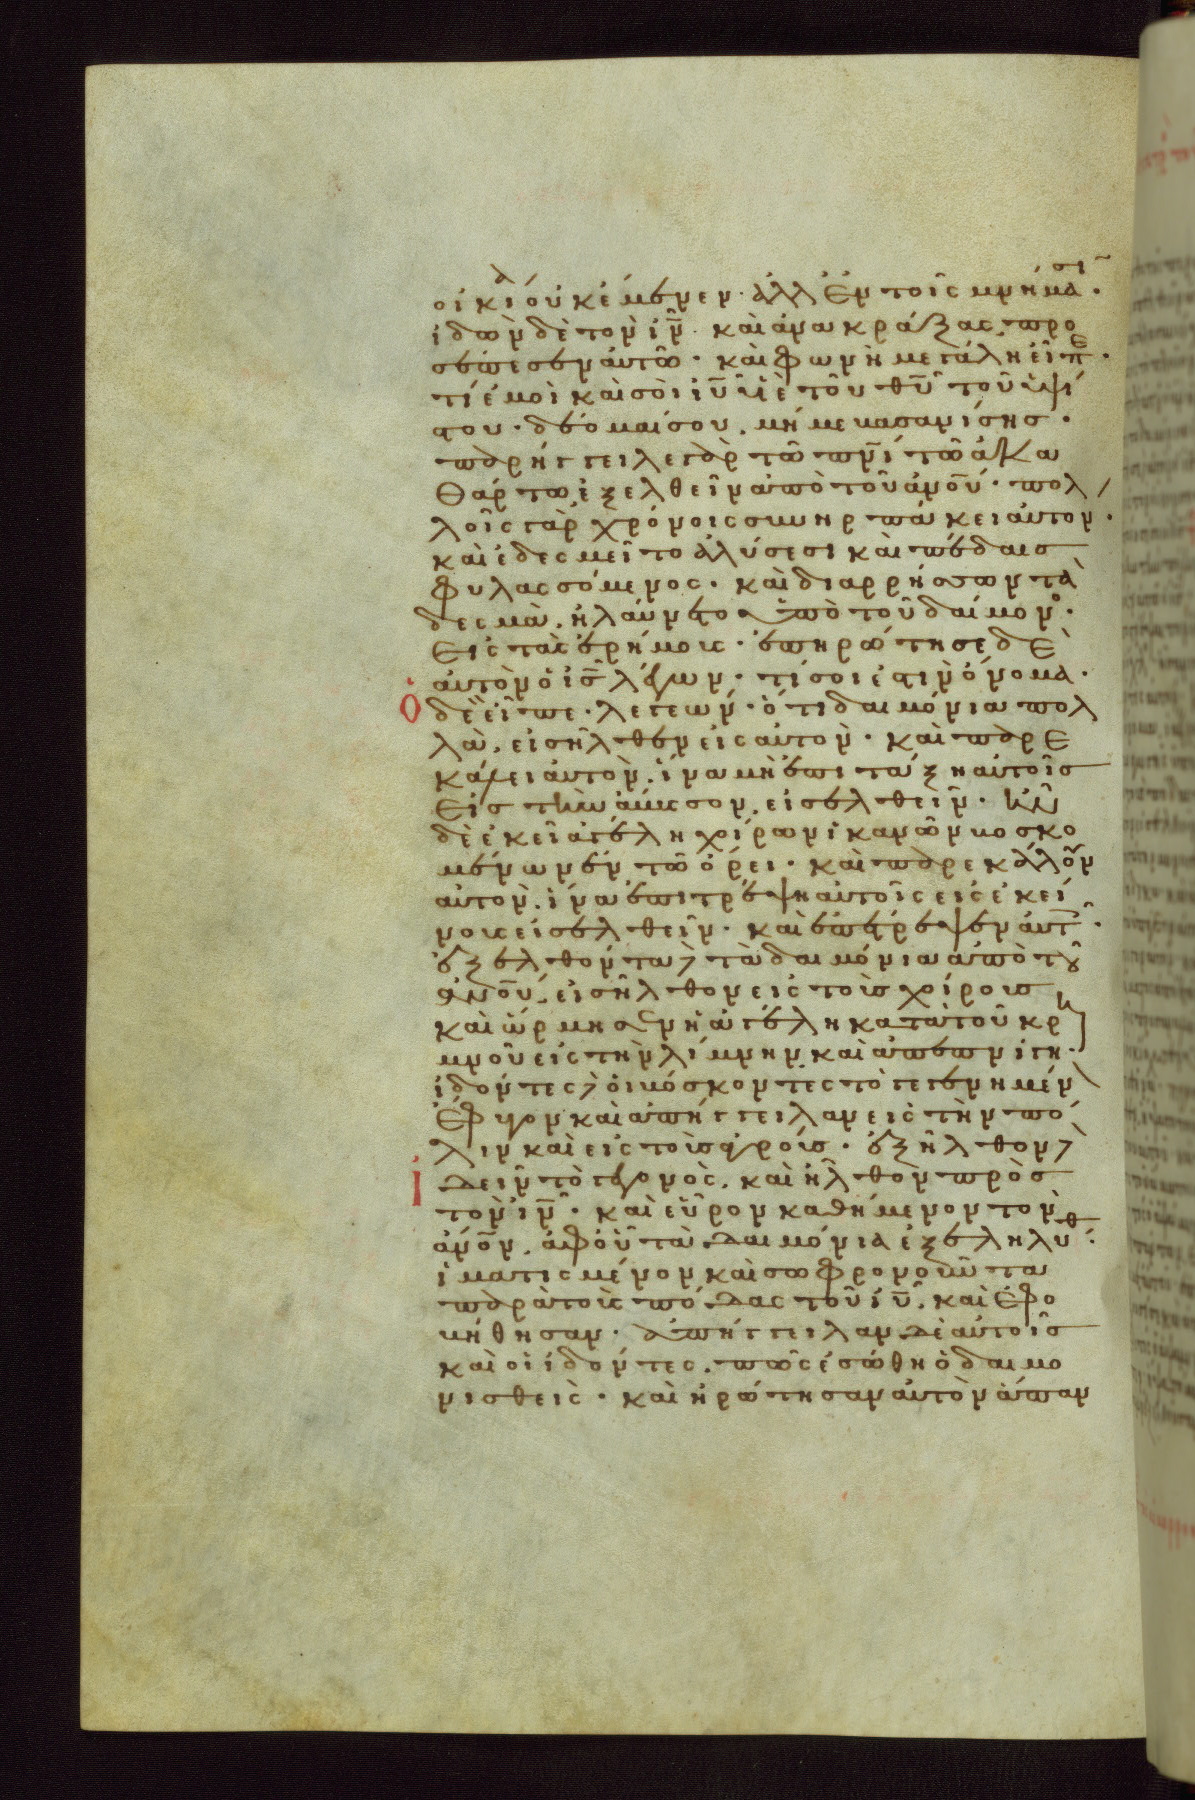 οἰκία οὐκ ἔμενεν· ἀλλ ἐν τοῖς μνήμασι·
ἰδὼν δὲ τὸν ἰν̅· καὶ ἀνακράξας, προ
σέπεσεν αὐτῶ· καὶ φωνῆ μεγάλη εἶπε·
τί ἐμοὶ καὶ σοὶ ἰυ̅ υἱὲ τοῦ θυ̅ τοῦ ὑψί
στου· δέομαί σου, μή με βασανίσης·
παρήγγειλε γὰρ τῶ πνι̅ τῶ ἀκα
θάρτω ἐξελθεῖν ἀπὸ τοῦ ἀνου̅· πολ
λοῖς γὰρ χρόνοις συνηρπάκει αὐτον·
καὶ ἐδεσμεῖτο ἁλύσεσι καὶ πέδαις
φυλασσόμενος· καὶ διαρρήσσων τὰ
δεσμὰ, ἠλαύνετο ὑπὸ τοῦ δαίμονο·
εἰς τὰς ἐρήμους· ἐπηρώτησε δὲ
αὐτὸν ὁ ἰσ̅ λέγων· τί σοι ἐστιν ὄνομα·
ὁ δὲ εἶπε· λεγεών· ὅτι δαιμόνια πολ
λὰ, εἰσῆλθεν εἰς αὐτον· καὶ παρε
κάλει αὐτον, ἵνα μὴ ἐπιτάξη αὐτοῖς
εἰς τὴν ἄβυσσον, εἰσελθεῖν· ἦν
δὲ ἐκεῖ ἀγέλη χοίρων ἱκανῶν βοσκο
μένων ἐν τῶ ὄρει· καὶ παρεκάλουν
αὐτον, ἵνα ἐπιτρέψη αὐτοῖς εἰς ἐκεί
νους εἰσελθεῖν· καὶ ἐπέτρεψεν αὐτ·
ἐξελθόντα δὲ τὰ δαιμόνια ἀπὸ τοῦ
ἀνου̅, εἰσῆλθον εἰς τοὺς χοίρους
καὶ ὥρμησεν ἡ ἀγέλη κατὰ τοῦ κρη
μνοῦ εἰς τὴν λίμνην καὶ ἀπεπνίγη·
ἰδόντες δὲ οἱ βόσκοντες τὸ γεγενημέν
ἔφυγον καὶ ἀπήγγειλαν εἰς τὴν πό
λιν καὶ εἰς τοὺς ἀγρούς· ἐξῆλθον δὲ
ἰδεῖν τὸ γεγονὸς, καὶ ἦλθον πρὸς
τὸν ἰν̅· καὶ εὗρον καθήμενον τὸν
ἀνον̅, ἀφ οὗ τὰ δαιμόνια ἐξεληλύθ·
ἱματισμένον καὶ σωφρονοῦντα
παρὰ τοὺς πόδας τοῦ ἰυ̅, καὶ ἐφο
βήθησαν· ἀπήγγειλαν δὲ αὐτοῖς
καὶ οἱ ἰδόντες, πῶς ἐσώθη ὁ δαιμο
νισθεὶς· καὶ ἠρώτησαν αὐτὸν ἅπαν